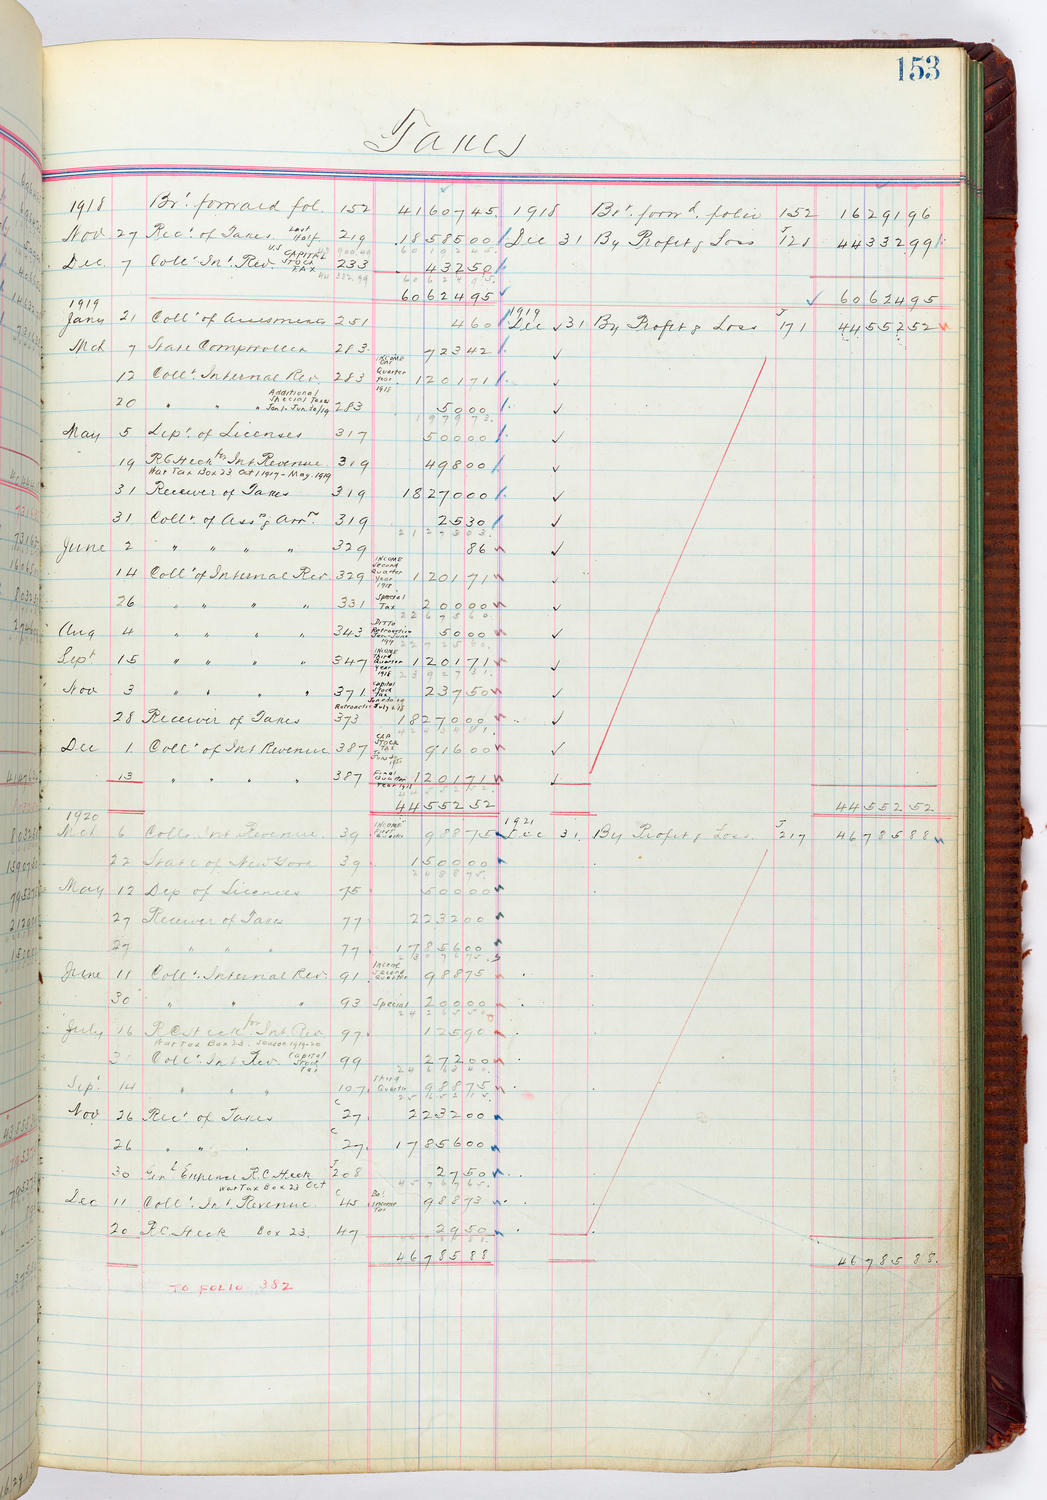 153
Taxes
1918 Br't forward fol. 152 41607 45 1918 Br't forw'd folio 152 16291 96
Nov 27 Rec'r of Taxes Last Half 219 18585 00 Dec 31 By Profit & Loss J 128 44332 99
Dec 7 Coll'r Int. Rev. U.S CAPITAL STOCK TAX 233 432 50
60624 95 60624 95
1919 1919
Jany 21 Coll'r of Assesments 251 4 60 Dec 31 By Profit & Loss J 171 44552 52
Mch 7 State Comptroller 283 723 42
12 Coll'r Internal Rev. 283 INCOME Quarter Year 1918 1201 71
20 " " " Additional Special Taxes Jan 1 - Jun 30/19 283 50 00
May 5 Dep't of Licenses 317 500 00
19 R C Heck for Int Revenue 319 498 00
War Tax Box 23 Oct 1917 - May 1919
31 Receiver of Taxes 319 18270 00
31 Coll'r of Ass's & Arr's 319 25 30
June 2 " " " " 329 86
14 Coll'r of Internal Rev 329 INCOME Second Quarter Year 1918 1201 71
26 " " " " 331 Special Tax 200 00
Aug 4 " " " " 343 DITTO Retroactive Jan-June 1919 50 00
Sept 15 " " " " 347 INCOME Third Quarter Year 1918 1201 71
Nov 3 " " " " 371 Capital Stock Tax 237 50
28 Receiver of Taxes 373 18270 00
Dec 1 Coll'r of Int Revenue 387 CAP STOCK TAX 916 00
13 " " " " 387 Final Quarter Year 1918 1201 71
44552 52 44552 52
1920 1921
Mch 6 Coll'r Int Revenue 39 INCOME First Quarter 988 75 Dec 31 By Profit & Loss J 217 46785 88
22 State of New York 39 1500 00
May 12 Dep of Licences 75 500 00
27 Receiver of Taxes 77 2232 00
27 " " " 77 17856 00
June 11 Coll'r Internal Rev 91 Income Second Quarter 988 75
30 " " " 93 Special 200 00
July 16 R.C. Heck for Int Rev 97 125 90
War Tax Box 23. Season 1919-20
31 Coll'r Int Rev Capital Stock Tax 99 272 00
Sept 14 " " " 107 Third Quarter 988 75
Nov 26 Rec'r of Taxes C 27 2232 00
26 " " " C 27 17856 00
30 Gen'l Expense R.C Heck J 208 27 50
War Tax Box 23 Oct
Dec 11 Coll'r Int. Revenue C 45 Bal Income Tax 988 73
20 R C. Heck Box 23. 47 29 50
46785 88 46785 88
TO FOLIO 382